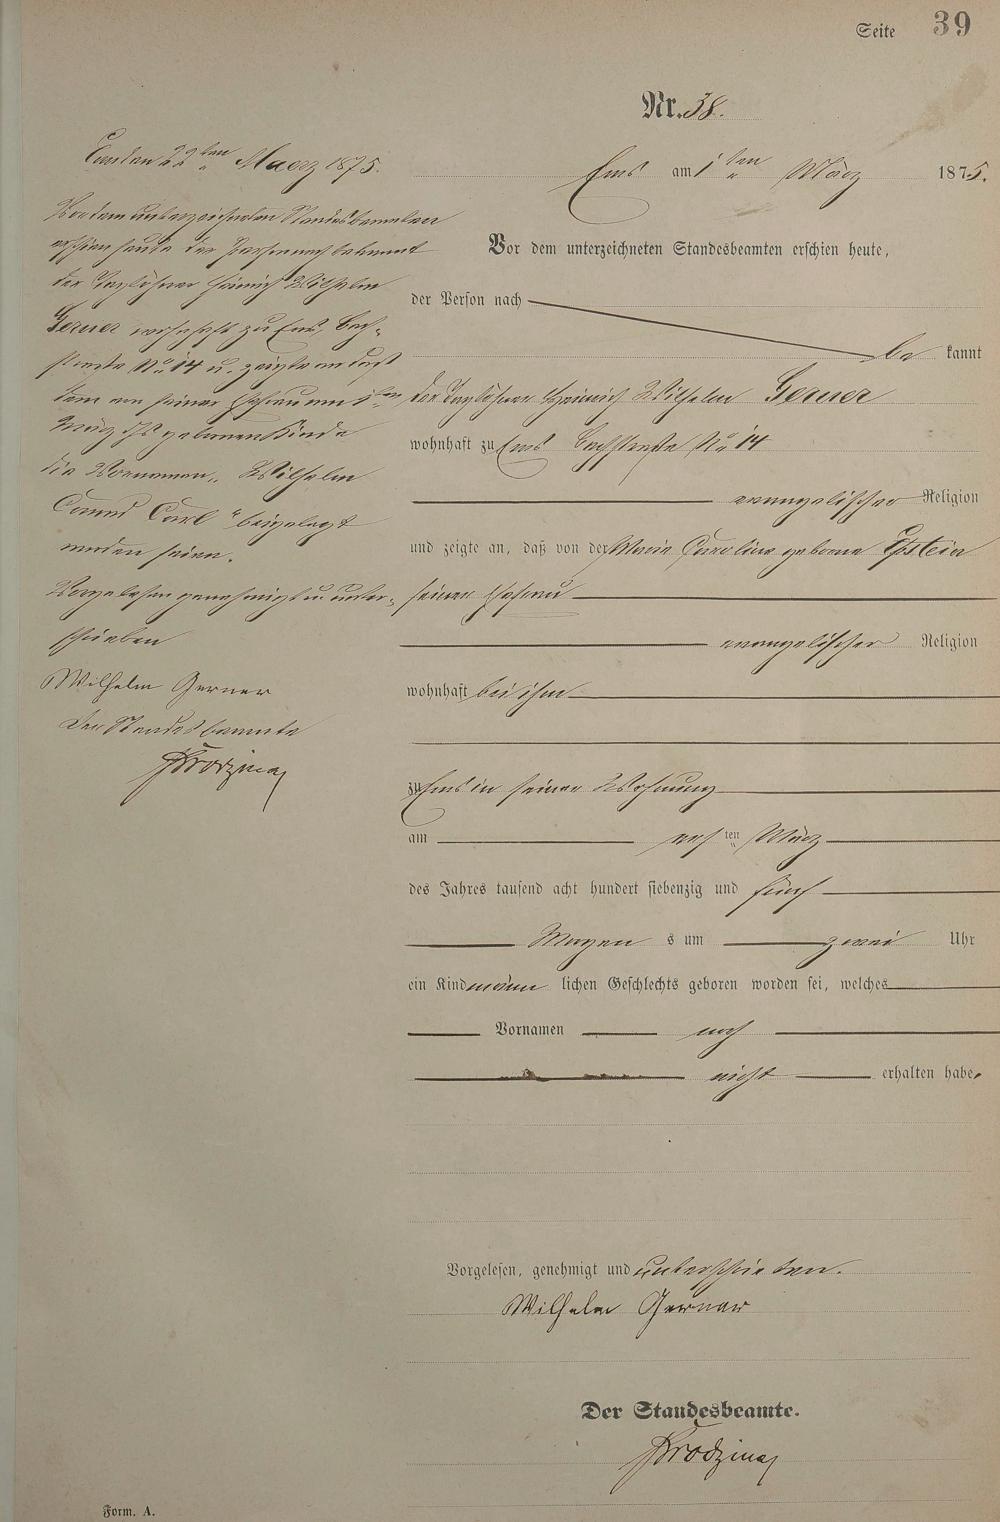 Seite 39
Nr. 38.
Ems am 1ten März 1875.
Vor dem unterzeichneten Standesbeamten erschien heute,
der Person nach
be kannt
der Taglöhner Heinrich Wilhelm Gerner
wohnhaft zu Ems Bachstraße No 14
evangelischer Religion
und zeigte an, daß von der Marie Caroline geborne Epstein
seiner Ehefrau
evangelischer Religion
wohnhaft bei ihm
zu Ems in seiner Wohnung
am ten März
des Jahres tausend acht hundert siebenzig und fünf
Morgen s um zwei Uhr
ein Kind männ lichen Geschlechts geboren worden sei, welches
Vornamen noch
nicht erhalten habe.
Vorgelesen, genehmigt und unterschrieben.
Wilhelm Gerner
Der Standesbeamte.
Ems den 22ten Maerz 1875.
Vor dem unterzeichneten Standesbeamten
erschien heute der Person nach bekannt
der Taglöhner Heinrich Wilhelm
Gerner wohnhaft zu Ems, Bach-
straße No 14 u. zeigte an daß
dem von seiner Ehefrau am 1ten
März geborenen Kinde
die Vornamen „Wilhelm
Carl“ beigelegt
worden seien.
Vorgelesen genehmigt u. unter-
schrieben
Wilhelm Gerner
Der Standesbeamte
Form. A.